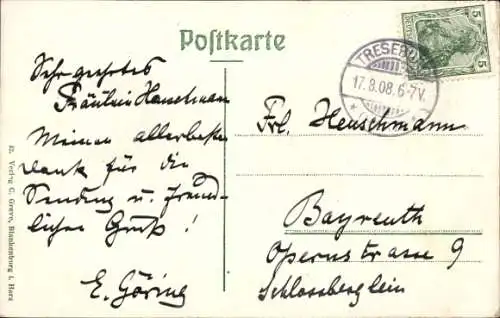 Postkarte
Sehr geehrtes
Fräulein Heuschmann
Meinen allerbesten
Dank für die
Sendung u. freund-
lichen Gruß!
E. Göring
TRESEBURG
17.8.08. 6-7V.
5
5
Frl. Heuschmann
Bayreuth
Opernstrasse 9
Schlossberglein
Verlag C. Grevo, Blankenburg i. Harz